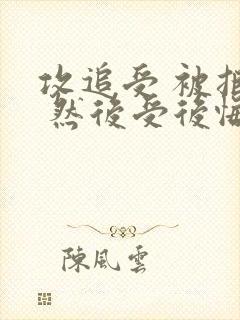 攻追受被拒
然後受後悔
陳風雲